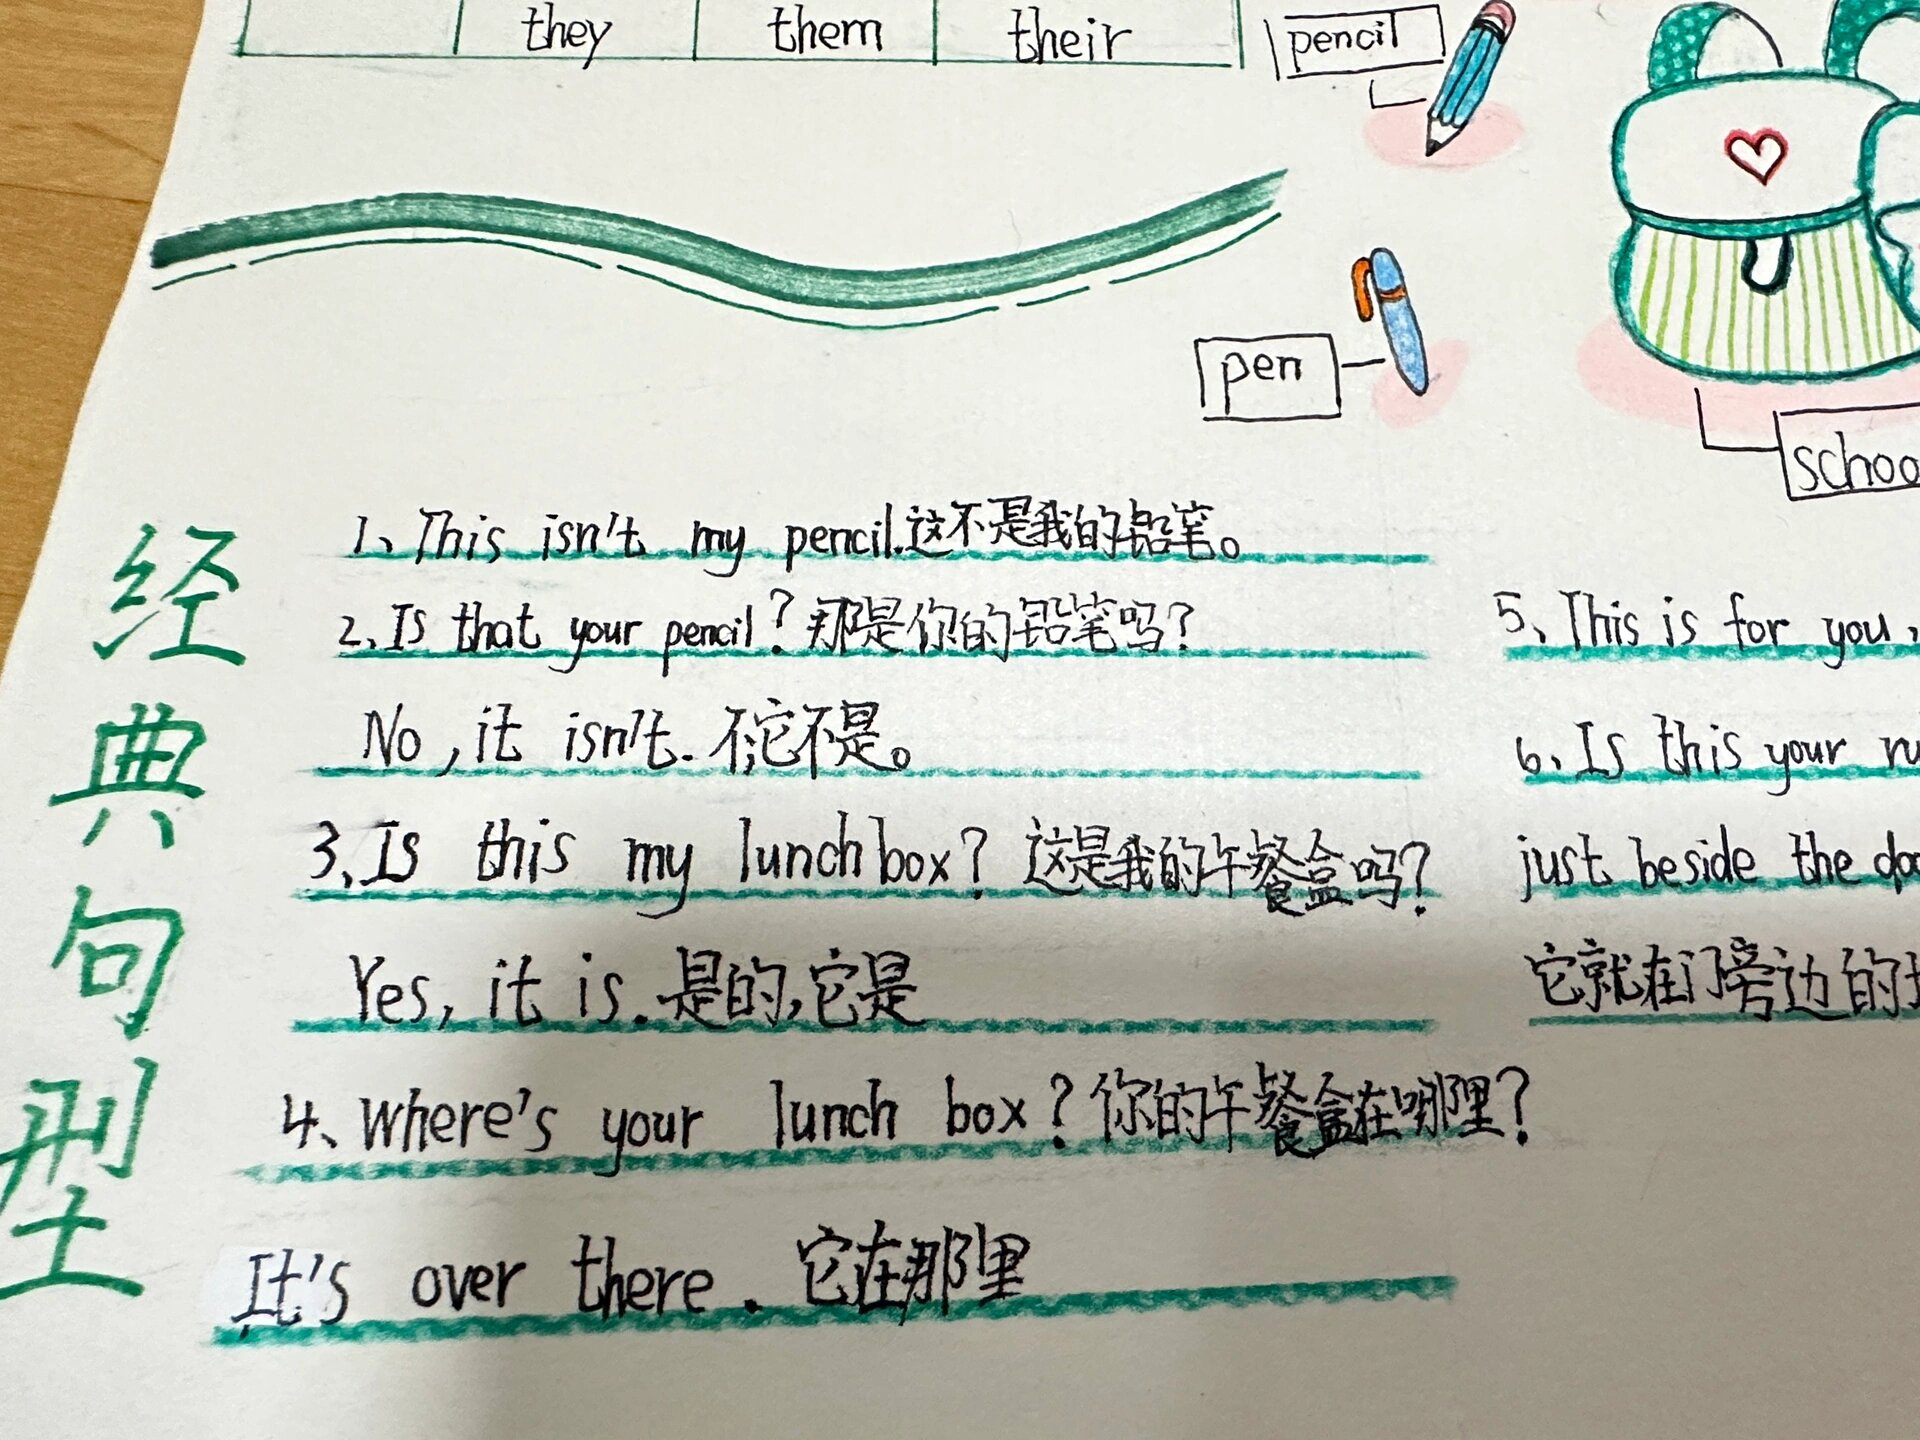 they them their
pencil
pen
schoo
经典句型
1、This isn't my pencil.这不是我的铅笔。
2、Is that your pencil? 那是你的铅笔吗?
No, it isn't. 不,它不是。
3、Is this my lunchbox? 这是我的午餐盒吗?
Yes, it is. 是的,它是
4、Where's your lunch box? 你的午餐盒在哪里?
It's over there. 它在那里
5、This is for you,
6、Is this your ru
just beside the doo
它就在门旁边的